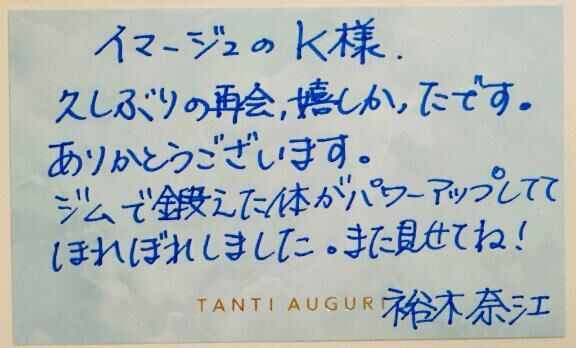 イマージュのK様.
久しぶりの再会,嬉しかったです。
ありがとうございます。
ジムで鍛えた体がパワーアップしてて
ほれぼれしました。また見せてね!
TANTI AUGURI
裕木奈江